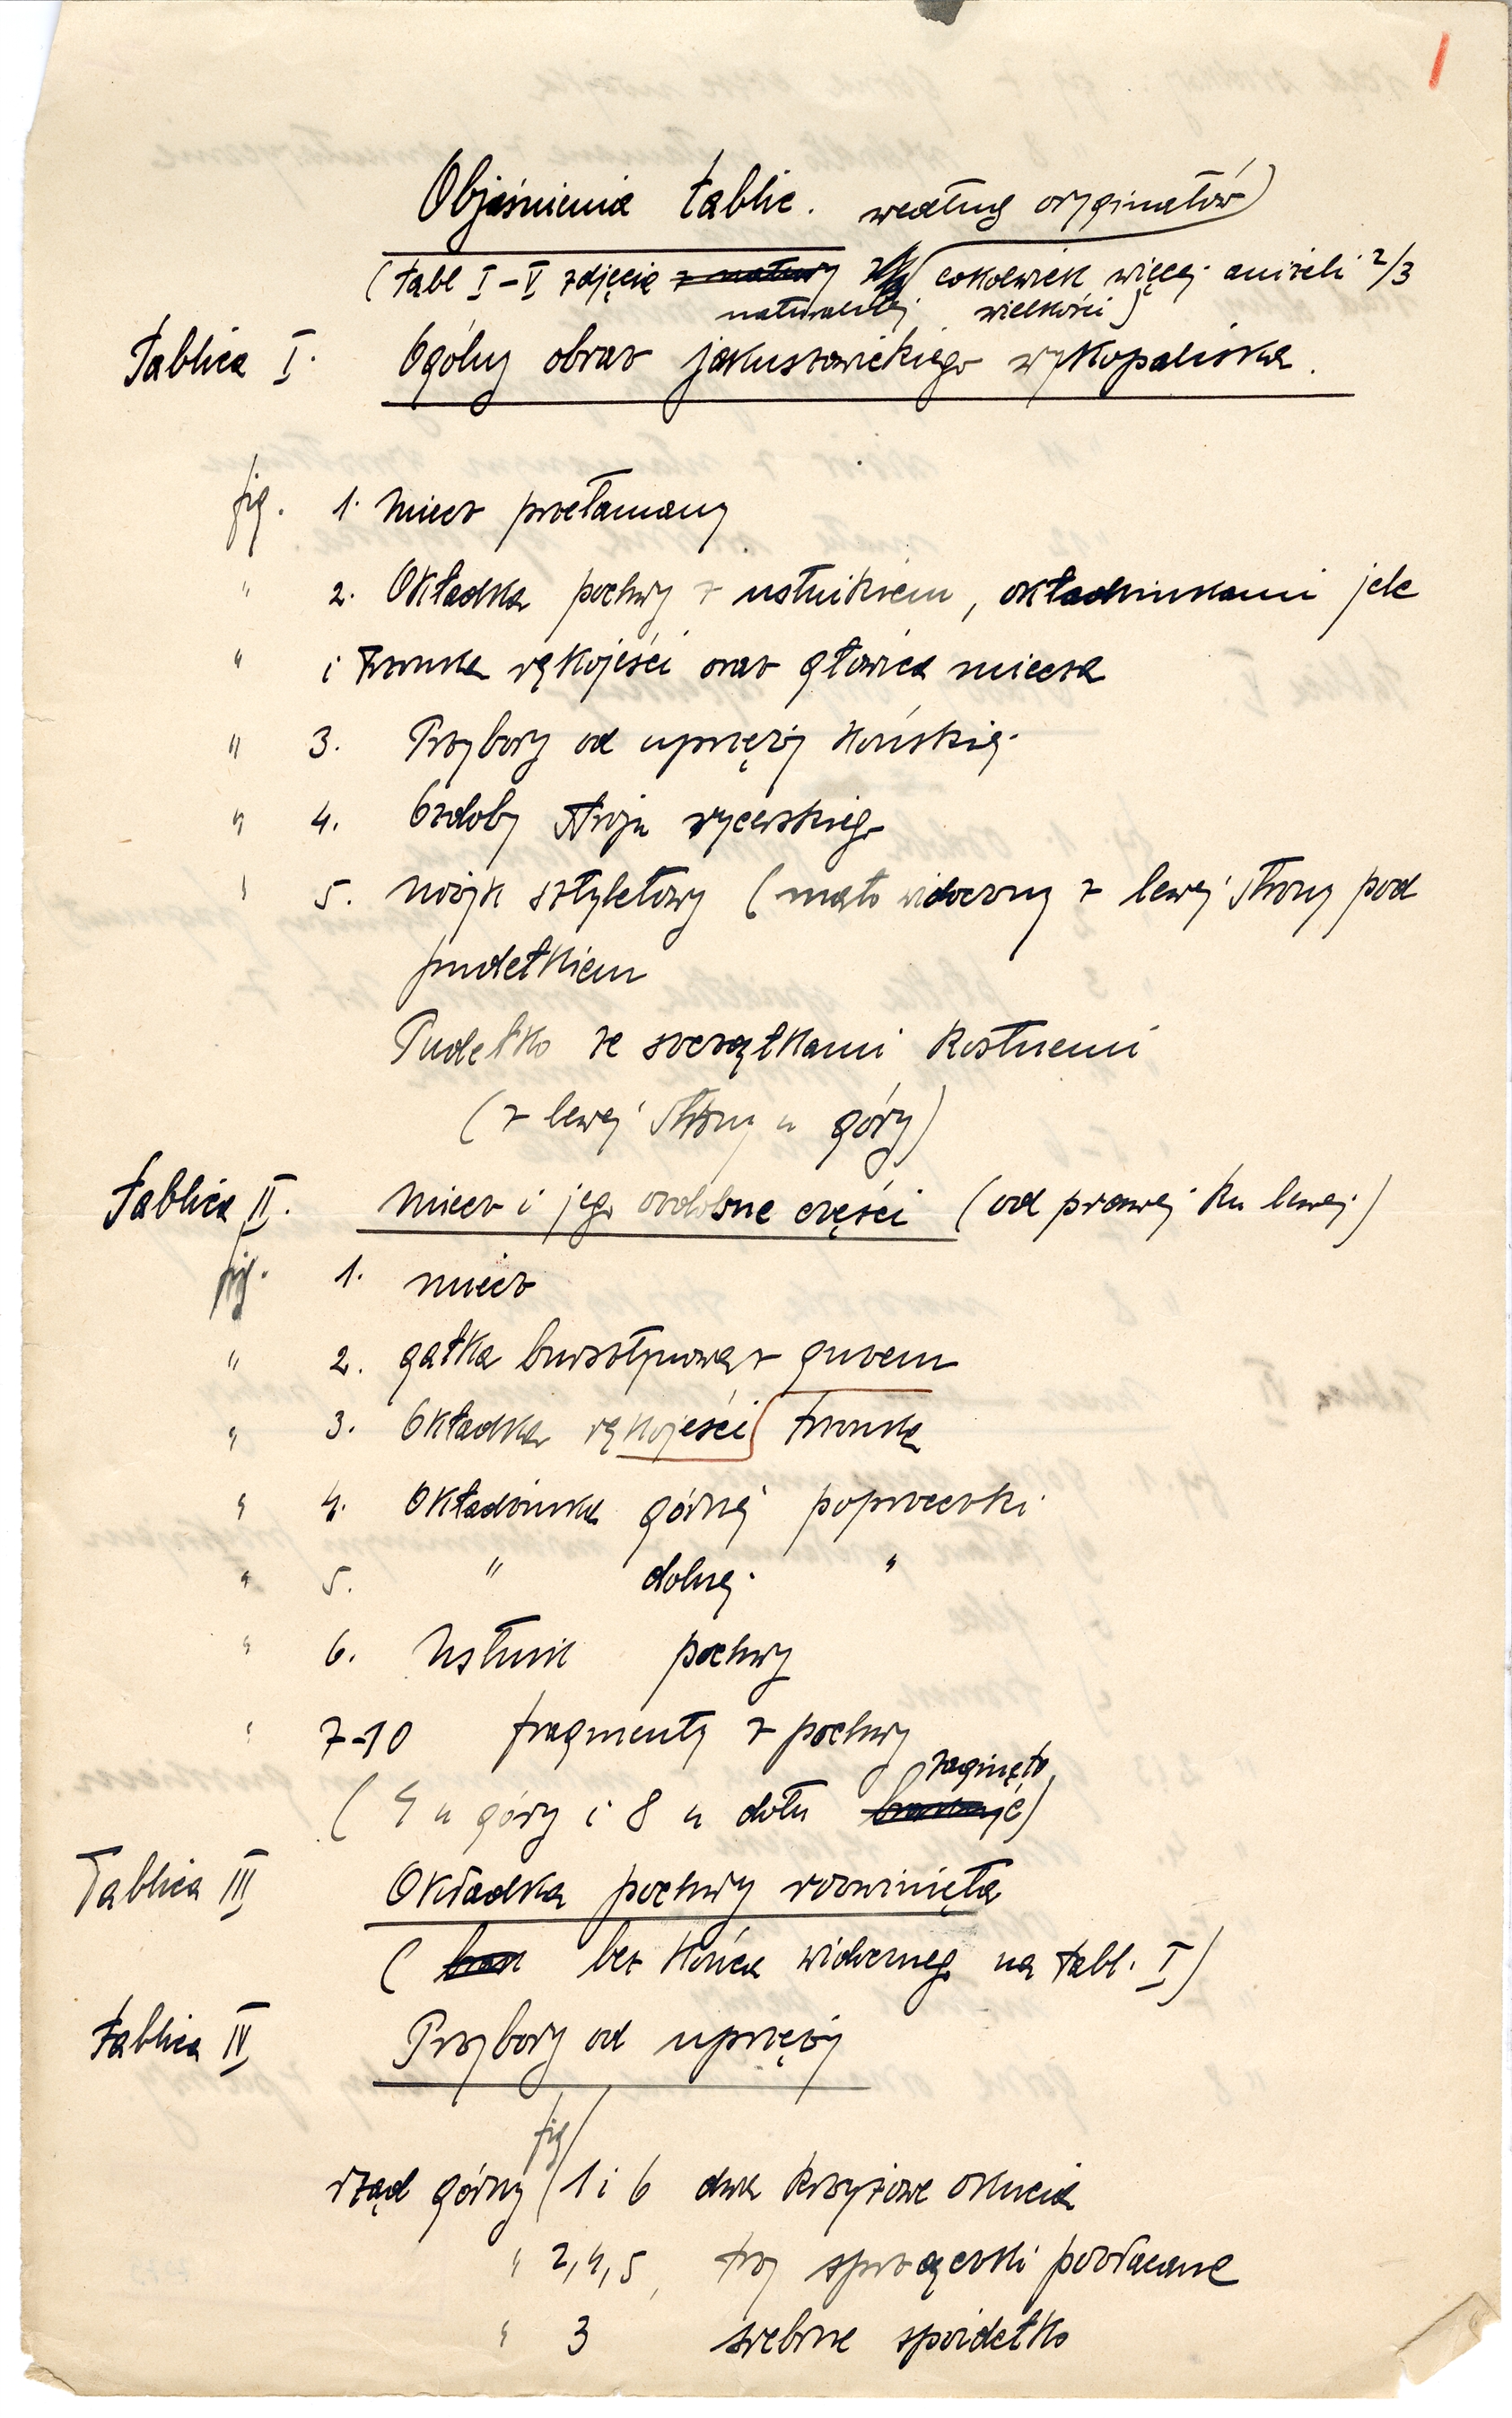 Objaśnienia tablic. według oryginałów
(tabl I–V zdjęcia z natury cokolwiek więcej aniżeli 2/3
naturalnej wielkości)
Tablica I. Ogólny obraz jakuszowickiego wykopaliska.
fig. 1. Miecz przełamany
" 2. Okładka pochwy z ustnikiem, okładzinkami jelc
" i trzonka rękojeści oraz głowica miecza
" 3. Przybory od uprzęży końskiej
" 4. Ozdoby stroju rycerskiego
" 5. Nożyk sztyletowy (mało widoczny z lewej strony pod
pudełkiem
Pudełko ze szczątkami kostnemi
(z lewej strony u góry)
Tablica II. Miecz i jego ozdobne części (od prawej ku lewej)
fig. 1. miecz
" 2. gałka bursztynowa z guzem
" 3. Okładka rękojeści trzonka
" 4. Okładzinka górnej poprzeczki
" 5. " dolnej "
" 6. Ustnik pochwy
" 7–10 fragmenty z pochwy
(4 u góry i 8 u dołu zaginęło)
Tablica III Okładka pochwy rozwinięta
( bez końca widocznego na tabl. I)
Tablica IV Przybory od uprzęży
fig
rząd górny 1 i 6 dwa krzyżowe okucia
" 2, 4, 5, trzy sprzączki pozłacane
" 3 srebrne spoidełko